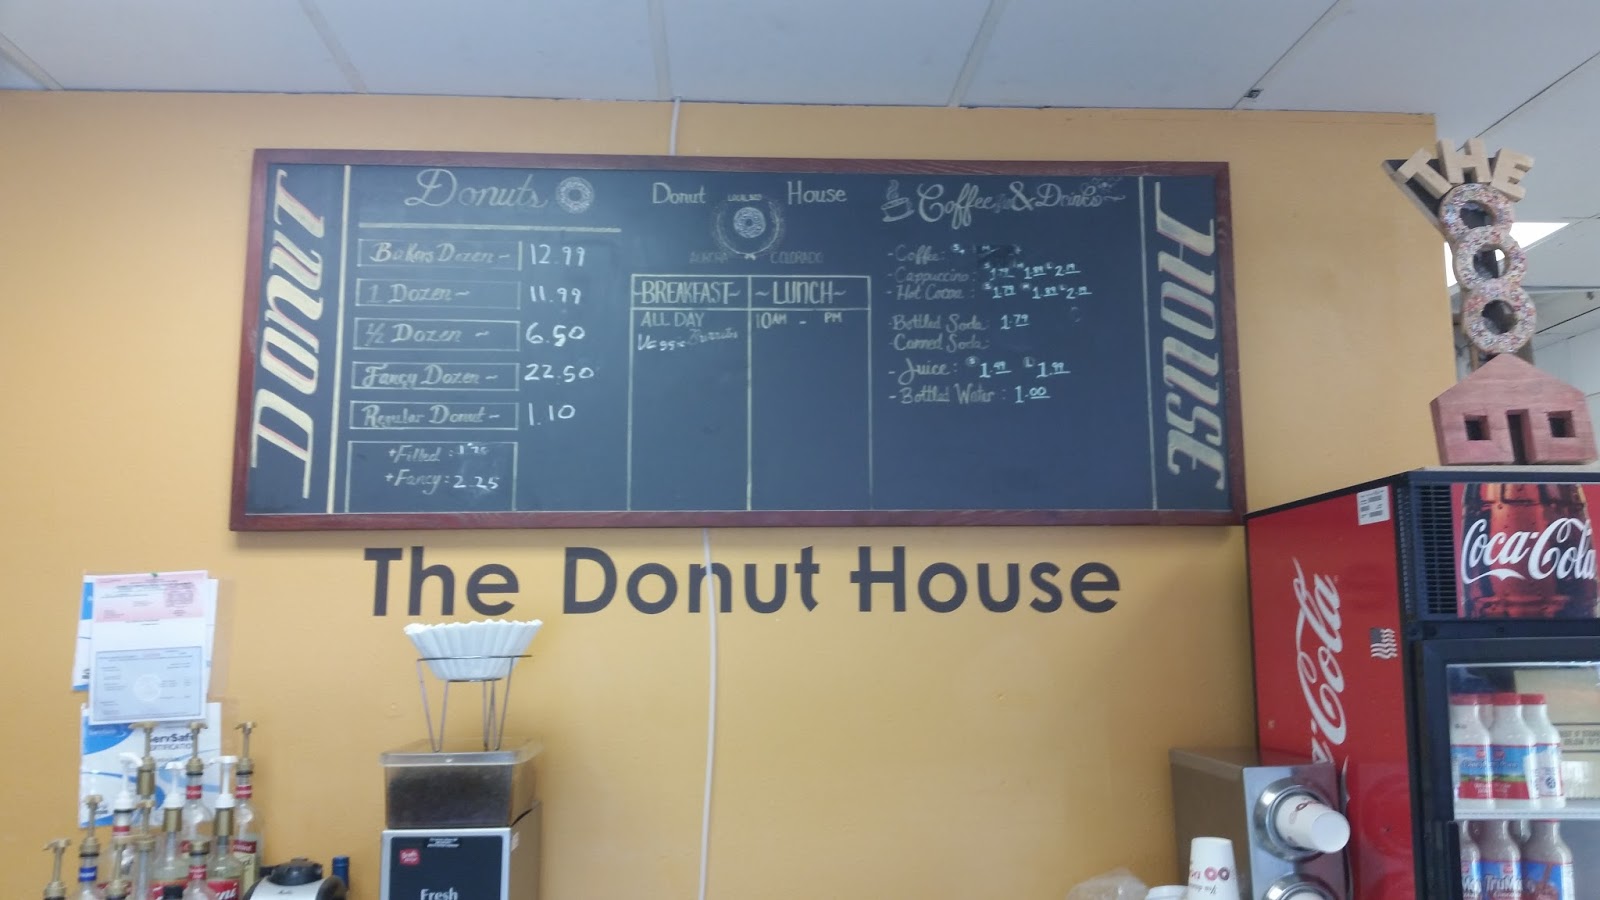 DONUT
Donuts
Bakers Dozen ~ 12.99
1 Dozen ~ 11.99
½ Dozen ~ 6.50
Fancy Dozen ~ 22.50
Regular Donut ~ 1.10
+Filled :
+Fancy: 2.25
Donut House
AURORA COLORADO
~BREAKFAST~
ALL DAY
Burritos
~LUNCH~
10AM - PM
Coffee & Drinks
- Coffee:
- Cappuccino: S 1.79 M 1.89 L 2.19
- Hot Cocoa: S 1.79 M 1.89 L 2.19
- Bottled Soda: 1.79
- Canned Soda:
- Juice: S 1.49 L 1.99
- Bottled Water: 1.00
HOUSE
The Donut House
THE
Coca-Cola
Coca-Cola
ServSafe
CERTIFICATION
Fresh
TruMoo